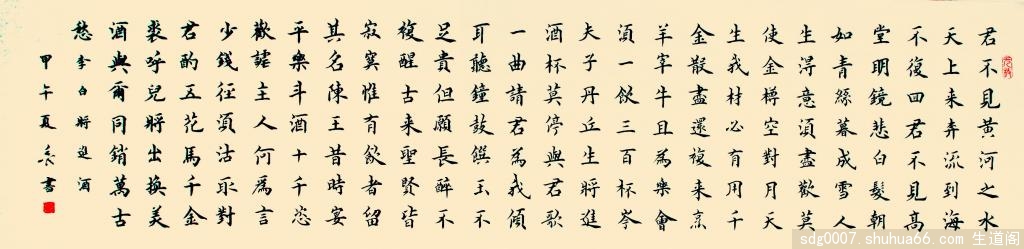 君不見黄河之水
天上来奔流到海
不復回君不見髙
堂明鏡悲白髮朝
如青絲暮成雪人
生淂意湏盡歡莫
使金樽空對月天
生我材必有用千
金散盡還複来烹
羊宰牛且為樂會
湏一飲三百杯岑
夫子丹丘生將進
酒杯莫停與君歌
一曲請君為我傾
耳聽鐘鼓饌玉不
足貴但願長醉不
複醒古来聖賢皆
寂寞惟有飲者留
其名陳王昔時宴
平樂斗酒十千恣
歡謔主人何為言
少錢徑湏沽取對
君酌五花馬千金
裘呼兒將出換美
酒與爾同銷萬古
愁李白將進酒
甲午夏書
sdg0007.shuhua66.com 生道阁